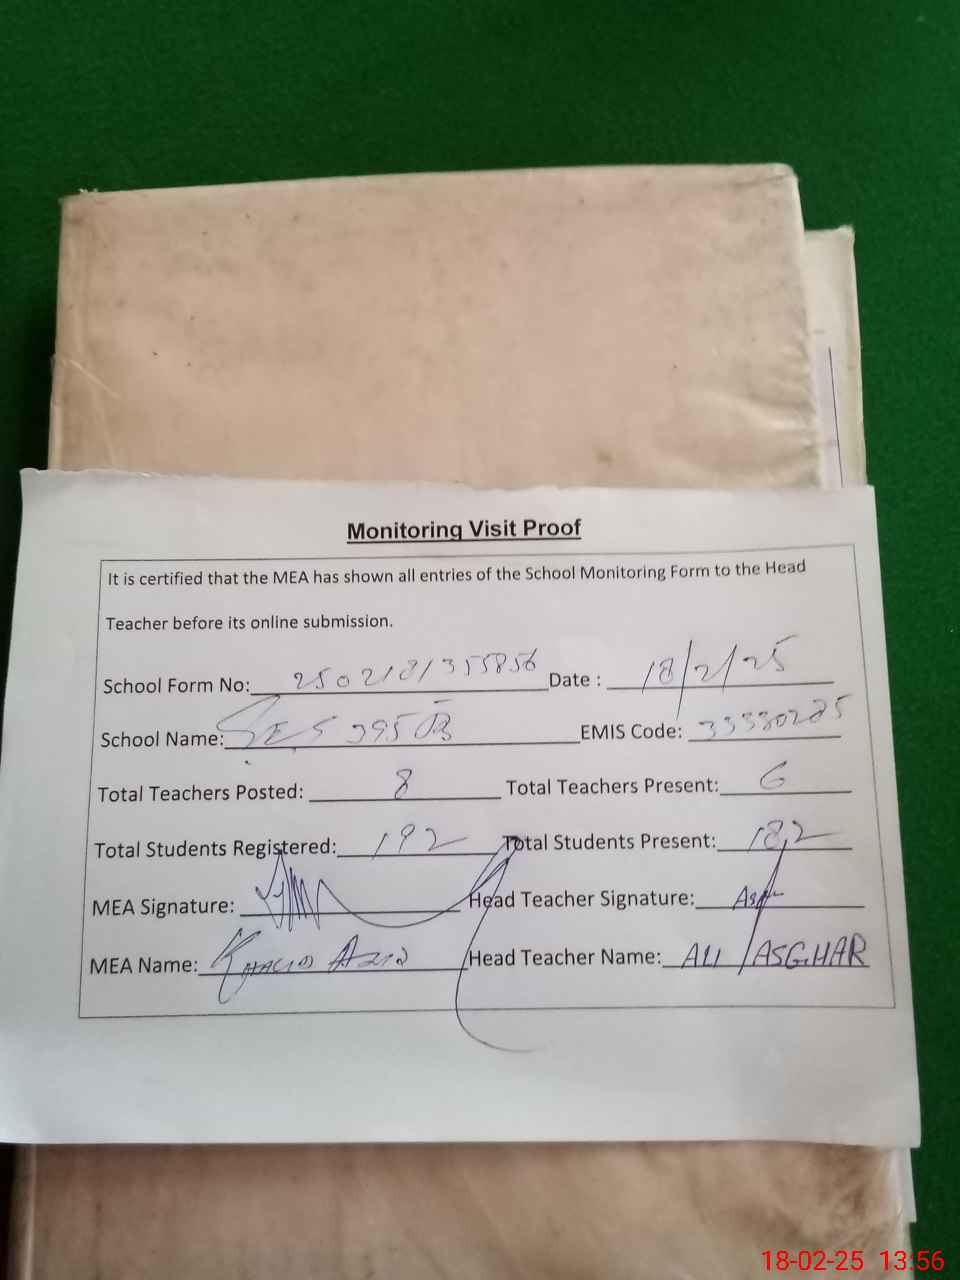 Monitoring Visit Proof
It is certified that the MEA has shown all entries of the School Monitoring Form to the Head
Teacher before its online submission.
School Form No: 250218/355856 Date : 18/2/25
School Name: GES 395 JB EMIS Code: 33330285
Total Teachers Posted: 8 Total Teachers Present: 6
Total Students Registered: 192 Total Students Present: 182
MEA Signature: Head Teacher Signature:
MEA Name: Khalid Aziz Head Teacher Name: ALI ASGHAR
18-02-25 13:56